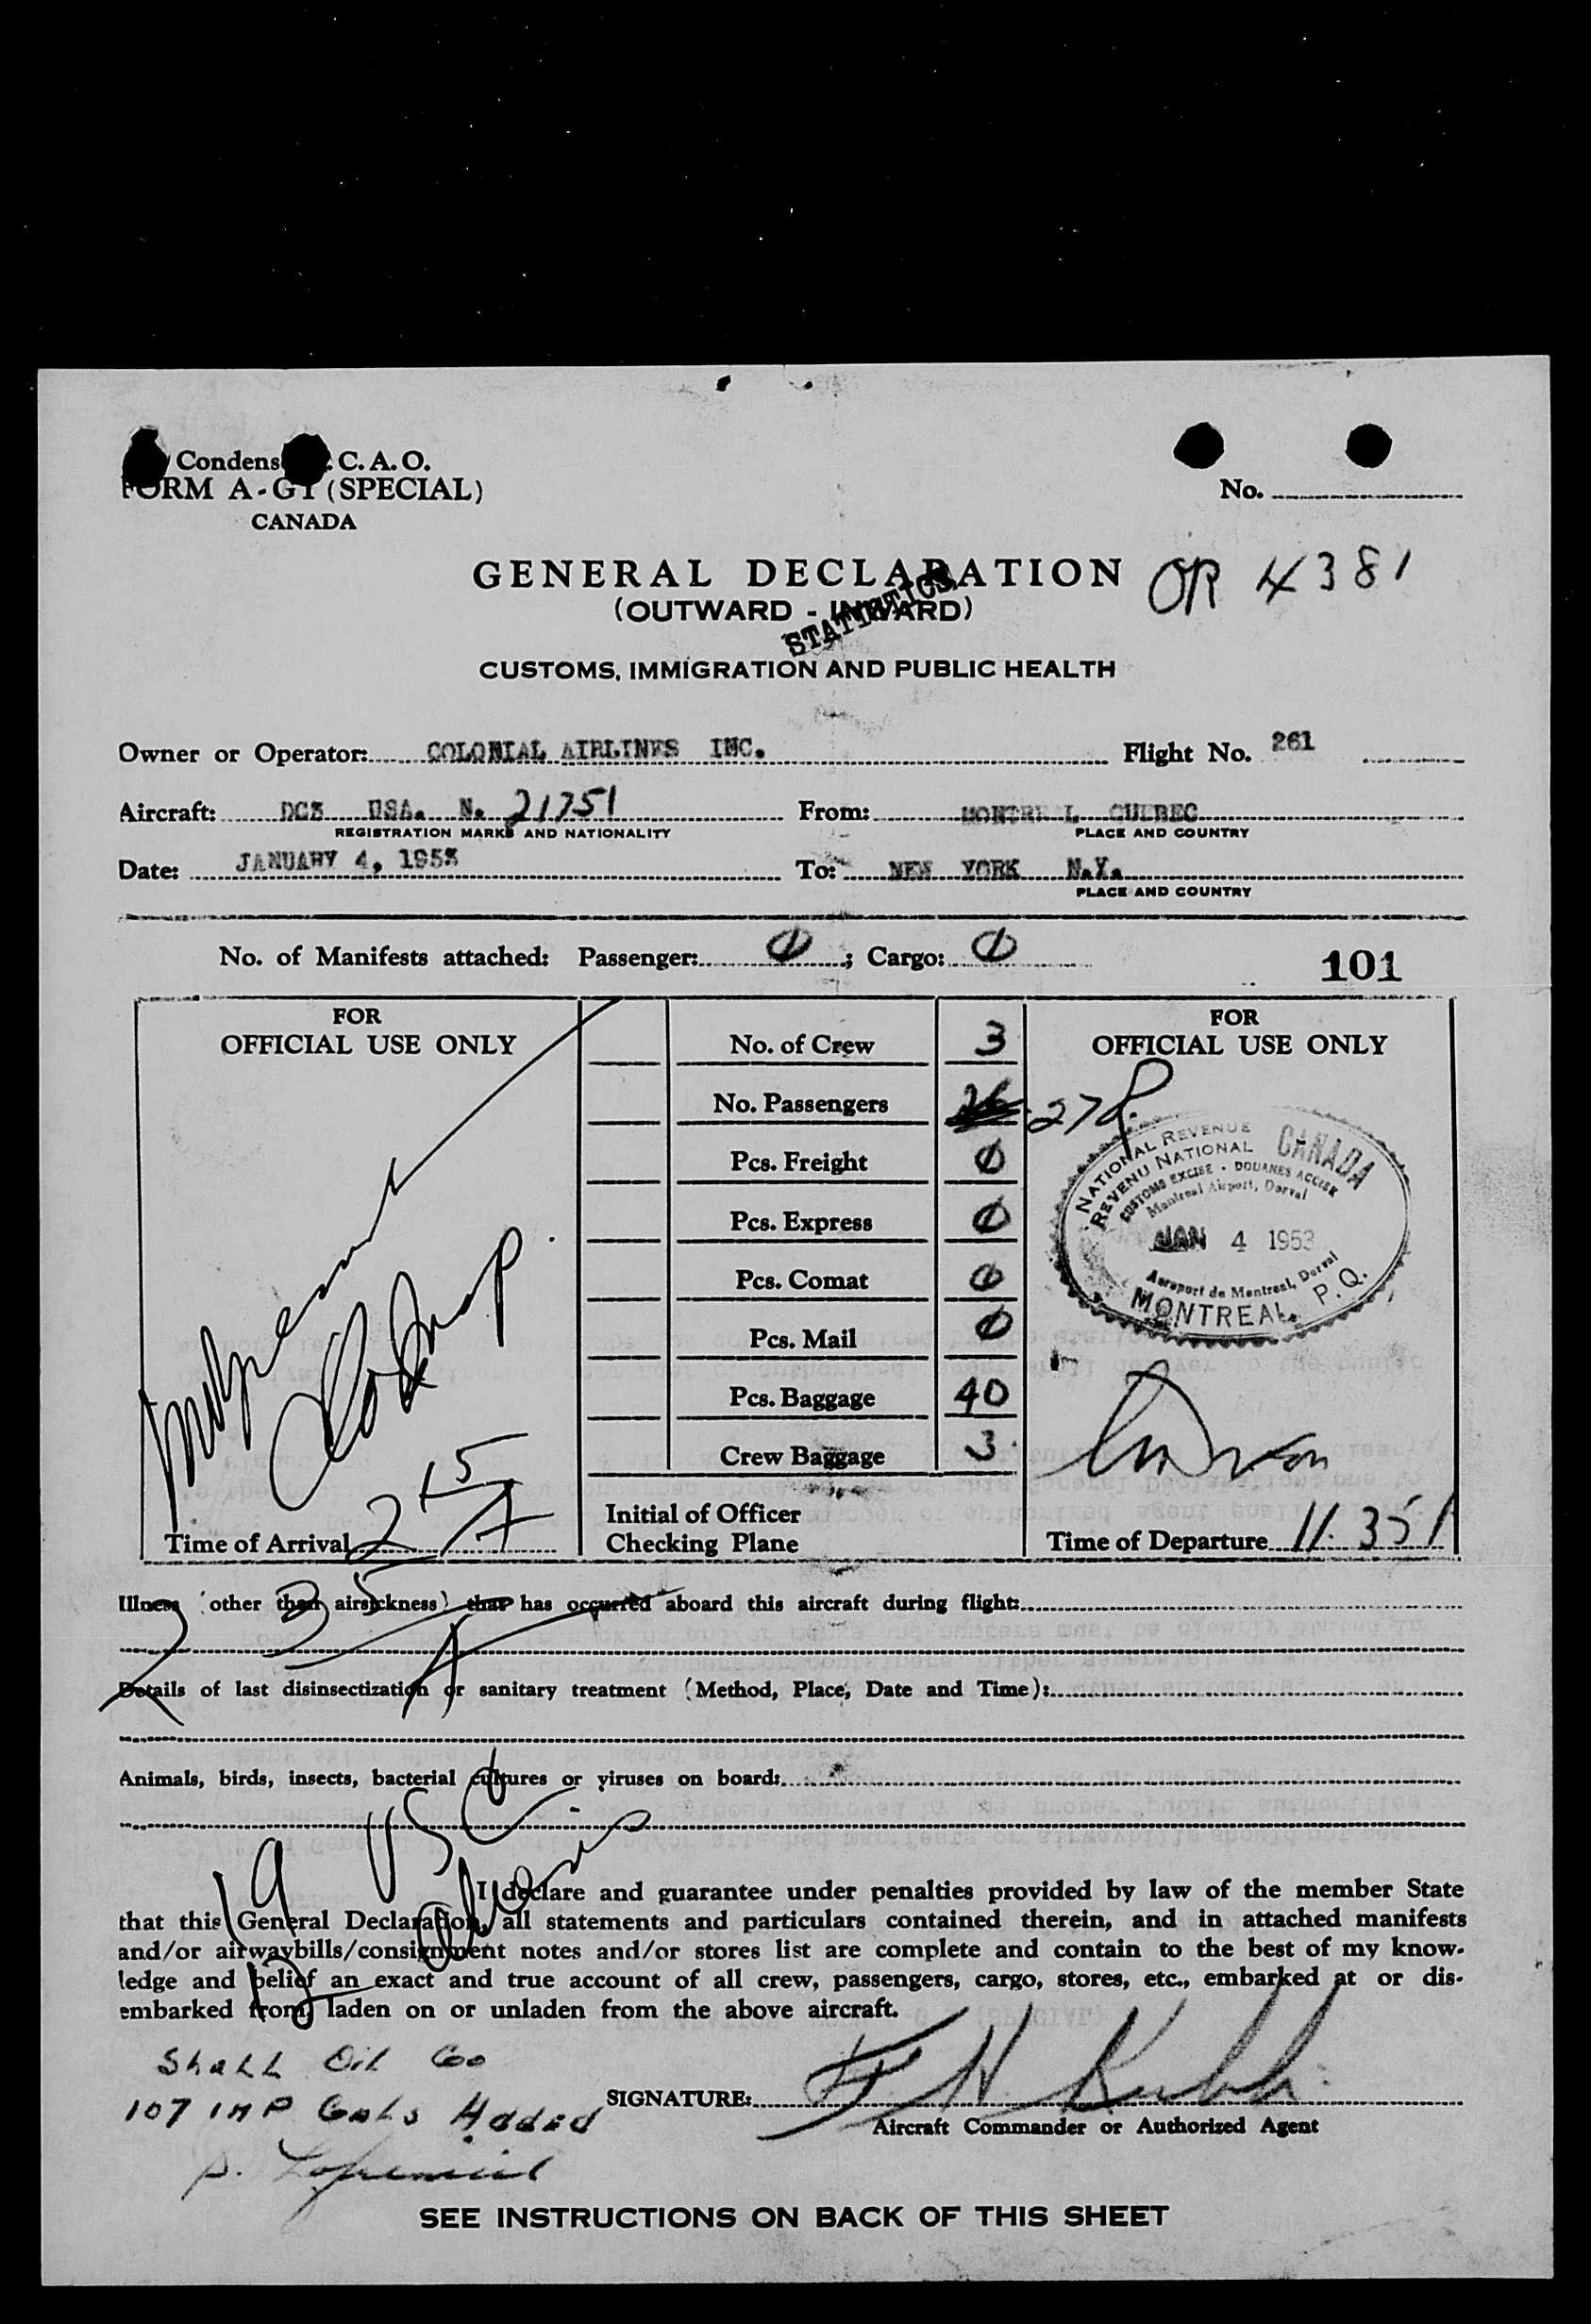 Condens C. A. O.
FORM A-G1 (SPECIAL)
CANADA
No.
GENERAL DECLARATION
OR 4381
(OUTWARD - INWARD)
STATISTICS
CUSTOMS, IMMIGRATION AND PUBLIC HEALTH
Owner or Operator: COLONIAL AIRLINES INC. Flight No. 261
Aircraft: DC3 USA. N. 21751 From: MONTRE L QUEBEC
REGISTRATION MARKS AND NATIONALITY PLACE AND COUNTRY
Date: JANUARY 4, 1953 To: NEW YORK N.Y.
PLACE AND COUNTRY
No. of Manifests attached: Passenger: 0 ; Cargo: 0
101
FOR
OFFICIAL USE ONLY
Time of Arrival 2 15
No. of Crew 3
No. Passengers 26 27
Pcs. Freight 0
Pcs. Express 0
Pcs. Comat 0
Pcs. Mail 0
Pcs. Baggage 40
Crew Baggage 3
Initial of Officer
Checking Plane
FOR
OFFICIAL USE ONLY
NATIONAL REVENUE CANADA
REVENU NATIONAL
CUSTOMS EXCISE - DOUANES ACCISE
Montreal Airport, Dorval
JAN 4 1953
Aeroport de Montreal, Dorval
MONTREAL, P.Q.
Time of Departure 11.35
Illness (other than airsickness) that has occurred aboard this aircraft during flight:
Details of last disinsectization or sanitary treatment (Method, Place, Date and Time):
Animals, birds, insects, bacterial cultures or viruses on board:
19 USC
I declare and guarantee under penalties provided by law of the member State
that this General Declaration, all statements and particulars contained therein, and in attached manifests
and/or airwaybills/consignment notes and/or stores list are complete and contain to the best of my know-
ledge and belief an exact and true account of all crew, passengers, cargo, stores, etc., embarked at or dis-
embarked from, laden on or unladen from the above aircraft.
Shell Oil Co
107 IMP Gals Added
SIGNATURE: F H
Aircraft Commander or Authorized Agent
SEE INSTRUCTIONS ON BACK OF THIS SHEET